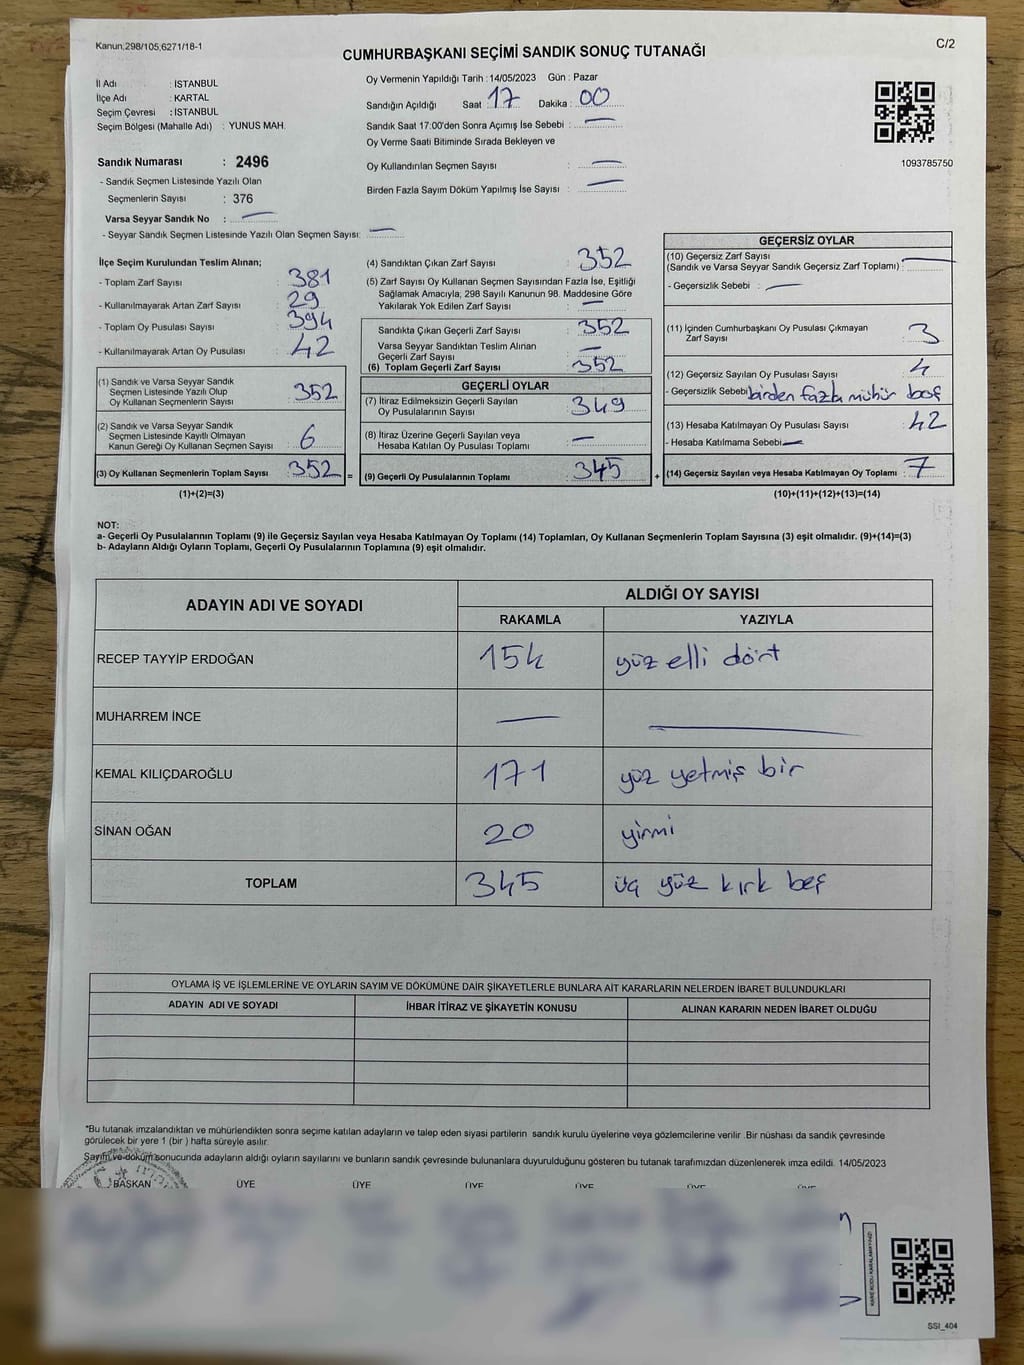 Kanun;298/105,6271/18-1
C/2
CUMHURBAŞKANI SEÇİMİ SANDIK SONUÇ TUTANAĞI
İl Adı : İSTANBUL
İlçe Adı : KARTAL
Seçim Çevresi : İSTANBUL
Seçim Bölgesi (Mahalle Adı) : YUNUS MAH.
Sandık Numarası : 2496
- Sandık Seçmen Listesinde Yazılı Olan
Seçmenlerin Sayısı : 376
Varsa Seyyar Sandık No : —
- Seyyar Sandık Seçmen Listesinde Yazılı Olan Seçmen Sayısı: —
Oy Vermenin Yapıldığı Tarih : 14/05/2023 Gün : Pazar
Sandığın Açıldığı Saat : 17 Dakika : 00
Sandık Saat 17:00'den Sonra Açımış İse Sebebi : —
Oy Verme Saati Bitiminde Sırada Bekleyen ve
Oy Kullandırılan Seçmen Sayısı : —
Birden Fazla Sayım Döküm Yapılmış İse Sayısı : —
1093785750
İlçe Seçim Kurulundan Teslim Alınan;
- Toplam Zarf Sayısı : 381
- Kullanılmayarak Artan Zarf Sayısı : 29
- Toplam Oy Pusulası Sayısı : 394
- Kullanılmayarak Artan Oy Pusulası : 42
(1) Sandık ve Varsa Seyyar Sandık
Seçmen Listesinde Yazılı Olup
Oy Kullanan Seçmenlerin Sayısı : 352
(2) Sandık ve Varsa Seyyar Sandık
Seçmen Listesinde Kayıtlı Olmayan
Kanun Gereği Oy Kullanan Seçmen Sayısı : 6
(3) Oy Kullanan Seçmenlerin Toplam Sayısı : 352 =
(1)+(2)=(3)
(4) Sandıktan Çıkan Zarf Sayısı : 352
(5) Zarf Sayısı Oy Kullanan Seçmen Sayısından Fazla İse, Eşitliği
Sağlamak Amacıyla, 298 Sayılı Kanunun 98. Maddesine Göre
Yakılarak Yok Edilen Zarf Sayısı : —
Sandıkta Çıkan Geçerli Zarf Sayısı : 352
Varsa Seyyar Sandıktan Teslim Alınan
Geçerli Zarf Sayısı : —
(6) Toplam Geçerli Zarf Sayısı : 352
GEÇERLİ OYLAR
(7) İtiraz Edilmeksizin Geçerli Sayılan
Oy Pusulalarının Sayısı : 349
(8) İtiraz Üzerine Geçerli Sayılan veya
Hesaba Katılan Oy Pusulası Toplamı : —
(9) Geçerli Oy Pusulalarının Toplamı : 345 +
GEÇERSİZ OYLAR
(10) Geçersiz Zarf Sayısı
(Sandık ve Varsa Seyyar Sandık Geçersiz Zarf Toplamı) : —
- Geçersizlik Sebebi : —
(11) İçinden Cumhurbaşkanı Oy Pusulası Çıkmayan
Zarf Sayısı : 3
(12) Geçersiz Sayılan Oy Pusulası Sayısı : 4
- Geçersizlik Sebebi birden fazla mühür boş
(13) Hesaba Katılmayan Oy Pusulası Sayısı : 42
- Hesaba Katılmama Sebebi —
(14) Geçersiz Sayılan veya Hesaba Katılmayan Oy Toplamı : 7
(10)+(11)+(12)+(13)=(14)
NOT:
a- Geçerli Oy Pusulalarının Toplamı (9) ile Geçersiz Sayılan veya Hesaba Katılmayan Oy Toplamı (14) Toplamları, Oy Kullanan Seçmenlerin Toplam Sayısına (3) eşit olmalıdır. (9)+(14)=(3)
b- Adayların Aldığı Oyların Toplamı, Geçerli Oy Pusulalarının Toplamına (9) eşit olmalıdır.
ADAYIN ADI VE SOYADI
ALDIĞI OY SAYISI
RAKAMLA YAZIYLA
RECEP TAYYİP ERDOĞAN 154 yüz elli dört
MUHARREM İNCE — —
KEMAL KILIÇDAROĞLU 171 yüz yetmiş bir
SİNAN OĞAN 20 yirmi
TOPLAM 345 üç yüz kırk beş
OYLAMA İŞ VE İŞLEMLERİNE VE OYLARIN SAYIM VE DÖKÜMÜNE DAİR ŞİKAYETLERLE BUNLARA AİT KARARLARIN NELERDEN İBARET BULUNDUKLARI
ADAYIN ADI VE SOYADI İHBAR İTİRAZ VE ŞİKAYETİN KONUSU ALINAN KARARIN NEDEN İBARET OLDUĞU
*Bu tutanak imzalandıktan ve mühürlendikten sonra seçime katılan adayların ve talep eden siyasi partilerin sandık kurulu üyelerine veya gözlemcilerine verilir. Bir nüshası da sandık çevresinde
görülecek bir yere 1 (bir ) hafta süreyle asılır.
Sayım ve döküm sonucunda adayların aldığı oyların sayılarını ve bunların sandık çevresinde bulunanlara duyurulduğunu gösteren bu tutanak tarafımızdan düzenlenerek imza edildi. 14/05/2023
BAŞKAN ÜYE ÜYE ÜYE ÜYE ÜYE ÜYE
KARE KODU KARALAMAYINIZ!
SSI_404